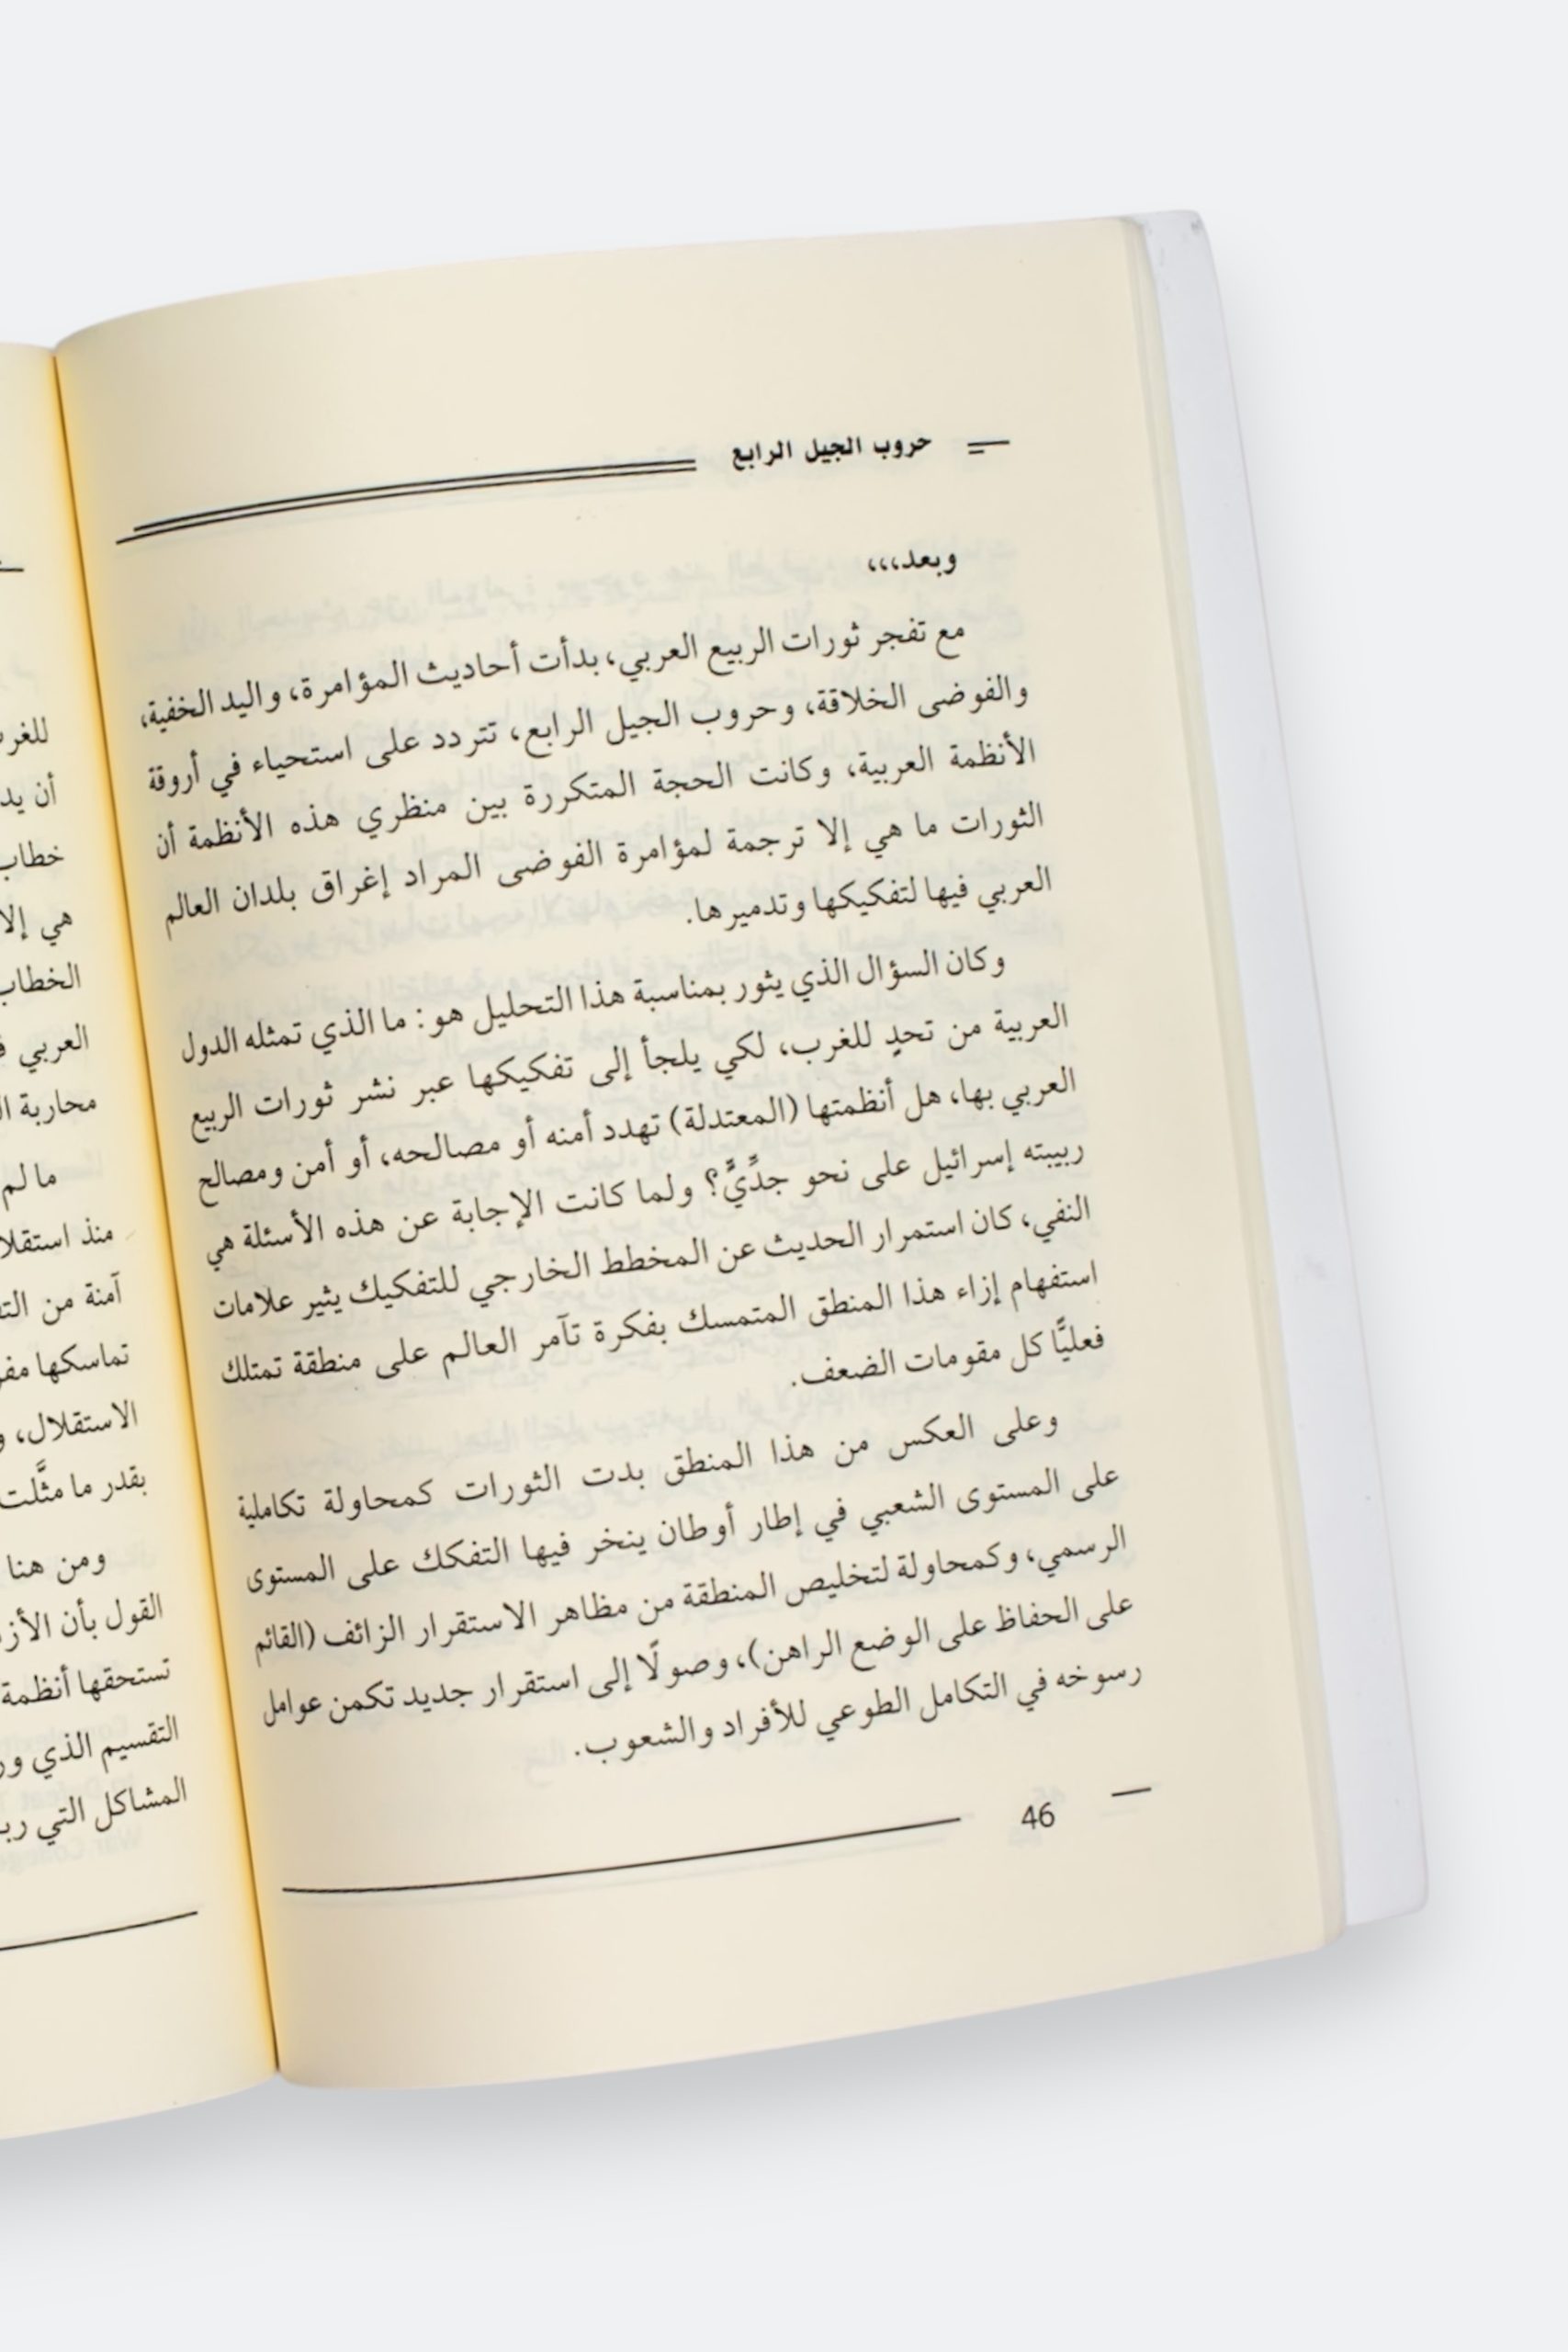 حروب الجيل الرابع
وبعد،،،
مع تفجر ثورات الربيع العربي، بدأت أحاديث المؤامرة، واليد الخفية،
والفوضى الخلاقة، وحروب الجيل الرابع، تتردد على استحياء في أروقة
الأنظمة العربية، وكانت الحجة المتكررة بين منظري هذه الأنظمة أن
الثورات ما هي إلا ترجمة لمؤامرة الفوضى المراد إغراق بلدان العالم
العربي فيها لتفكيكها وتدميرها.
وكان السؤال الذي يثور بمناسبة هذا التحليل هو: ما الذي تمثله الدول
العربية من تحدٍ للغرب، لكي يلجأ إلى تفكيكها عبر نشر ثورات الربيع
العربي بها، هل أنظمتها (المعتدلة) تهدد أمنه أو مصالحه، أو أمن ومصالح
ربيبته إسرائيل على نحو جدًيًّ؟ ولما كانت الإجابة عن هذه الأسئلة هي
النفي، كان استمرار الحديث عن المخطط الخارجي للتفكيك يثير علامات
استفهام إزاء هذا المنطق المتمسك بفكرة تآمر العالم على منطقة تمتلك
فعليًّا كل مقومات الضعف.
وعلى العكس من هذا المنطق بدت الثورات كمحاولة تكاملية
على المستوى الشعبي في إطار أوطان ينخر فيها التفكك على المستوى
الرسمي، وكمحاولة لتخليص المنطقة من مظاهر الاستقرار الزائف (القائم
على الحفاظ على الوضع الراهن)، وصولًا إلى استقرار جديد تكمن عوامل
رسوخه في التكامل الطوعي للأفراد والشعوب.
46
أن
هي إلا
العربي
محاربة
ما لم
آمنة من
الاستقلال،
بقدر ما مثَّلت
ومن هنا
القول بأن
تستحقها أنظمة
التقسيم الذي
المشاكل التي